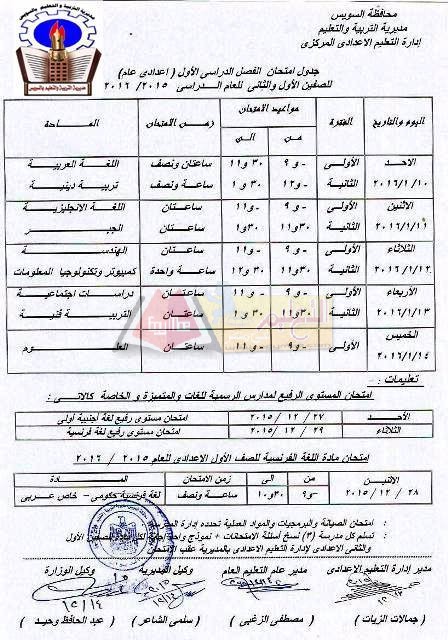 محافظة السويس
مديرية التربية والتعليم
إدارة التعليم الاعدادى المركزى
جدول امتحان الفصل الدراسى الأول ( اعدادى عام )
للصفين الأول والثانى للعام الدراسى ٢٠١٥ / ٢٠١٦
اليوم والتاريخ الفترة مواعيد الامتحان زمن الامتحان المادة
من الى
الاحد الأولى ـ و ٩ ٣٠ و ١١ ساعتان ونصف اللغة العربية
٢٠١٦/١/١٠ الثانية ـ و ١٢ ٣٠ و ١ ساعة ونصف تربية دينية
الاثنين الأولى ـ و ٩ ـ و ١١ ساعتان اللغة الانجليزية
٢٠١٦/١/١١ الثانية ٣٠ و ١١ ٣٠ و ١ ساعتان الجبر
الثلاثاء الأولى ـ و ٩ ـ و ١١ ساعتان الهندسة
٢٠١٦/١/١٢ الثانية ٣٠ و ١١ ٣٠ و ١٢ ساعة واحدة كمبيوتر وتكنولوجيا المعلومات
الأربعاء الأولى ـ و ٩ ـ و ١١ ساعتان دراسات اجتماعية
٢٠١٦/١/١٣ الثانية ٣٠ و ١١ ٣٠ و ١ ساعتان التربية فنية
الخميس الأولى ـ و ٩ ـ و ١١ ساعتان العلوم
٢٠١٦/١/١٤
تعليمات : -
امتحان المستوى الرفيع لمدارس الرسمية للغات والمتميزة و الخاصة كالاتى :
الأحد ٢٧ / ١٢ / ٢٠١٥ امتحان مستوى رفيع لغة أجنبية أولى
الثلاثاء ٢٩ / ١٢ / ٢٠١٥ امتحان مستوى رفيع لغة فرنسية
امتحان مادة اللغة الفرنسية للصف الأول الاعدادى للعام ٢٠١٥ / ٢٠١٦
الاثنين من الى زمن الامتحان المادة
٢٨ / ١٢ / ٢٠١٥ ـ و ٩ ٣٠ و ١٠ ساعة ونصف لغة فرنسية حكومى - خاص عربى
امتحان الصيانة والبرمجيات والمواد العملية تحدده إدارة
تسلم كل مدرسة (٣) نسخ أسئلة الامتحانات + نموذج واحد إجابة لكل مادة للصفين الأول
والثانى الاعدادى لإدارة التعليم الاعدادى بالمديرية عقب الامتحان
مدير إدارة التعليم الاعدادى مدير عام التعليم العام وكيل المديرية وكيل الوزارة
( جمالات الزيات ) ( مصطفى الزغبى ) ( سلمى الشاعر ) ( عبد الحافظ وحيد )